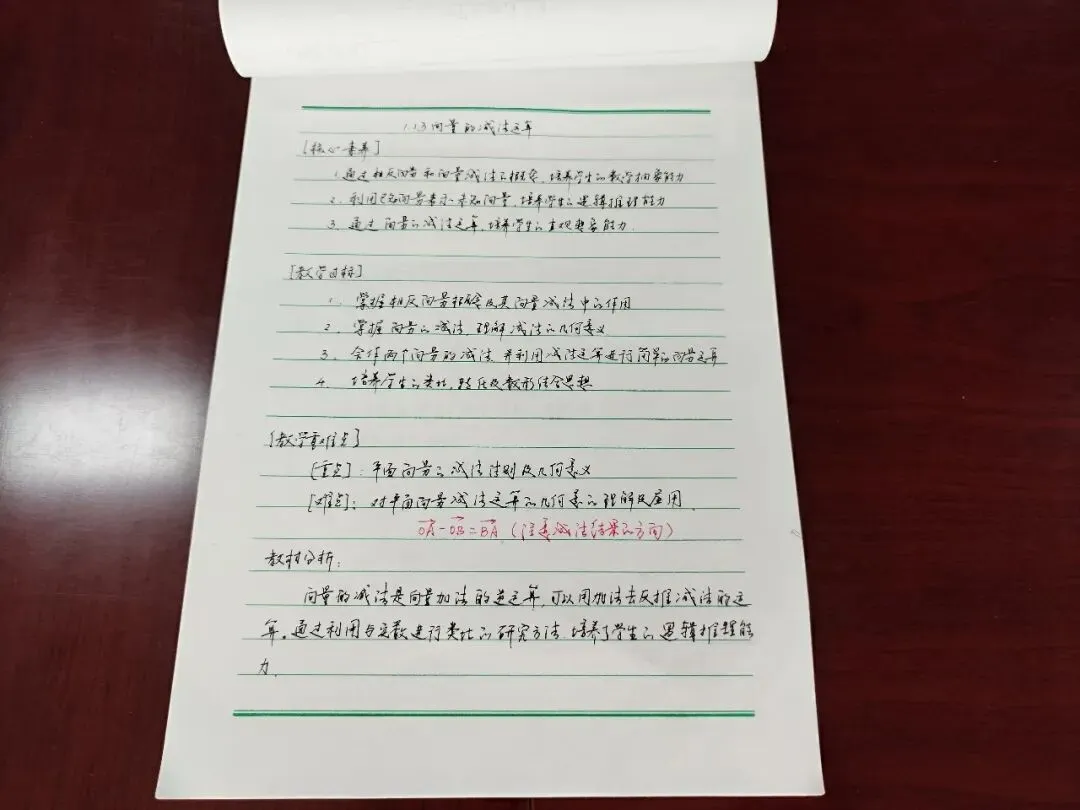 1.1.3向量的减法运算
[核心素养]
1.通过相反向量和向量减法的概念,培养学生的数学抽象能力
2.利用已知向量表示未知向量,培养学生的逻辑推理能力
3.通过向量的减法运算,培养学生的直观想象能力.
[教学目标]
1.掌握相反向量概念及其向量减法中的作用
2.掌握向量的减法,理解减法的几何意义
3.会作两个向量的减法,并利用减法运算进行简单的向量运算
4.培养学生的类比,转化及数形结合思想
[教学重难点]
[重点]:平面向量的减法法则及几何意义
[难点]:对平面向量减法运算的几何意义的理解及应用.
OA-OB=BA(注意减法结果的方向)
教材分析:
向量的减法是向量加法的逆运算,可以用加法去反推减法的运
算。通过利用与实数进行类比的研究方法,培养了学生的逻辑推理能
力.